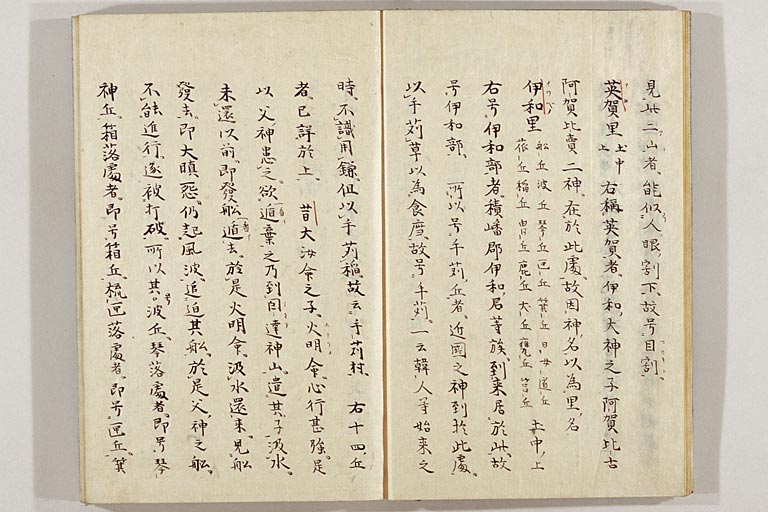 見此二山者能似人眼割下故号目割
英賀里 土中上 右稱英賀者伊和大神之子阿賀比古
阿賀比賣二神在於此處故因神名以為里名
伊和里 船丘波丘琴丘匣丘箕丘日女道丘
藤丘稲丘冑丘鹿丘犬丘甕丘筥丘 土中上
右号伊和部者積幡郡伊和君等族到来居於此故
号伊和部所以号手苅丘者近國之神到於此處
以手苅草以為食薦故号手苅一云韓人等始来之
時不識用鎌但以手苅稲故云手苅村右十四丘
者已詳於上昔大汝命之子火明命心行甚強是
以父神患之欲遁棄之乃到因達神山遣其子汲水
未還以前即發船遁去於是火明命汲水還来見船
發去即大瞋怨仍起風波追迫其船於是父神之船
不能進行遂被打破所以其号波丘琴落處者即号琴
神丘箱落處者即号箱丘梳匣落處者即号匣丘箕